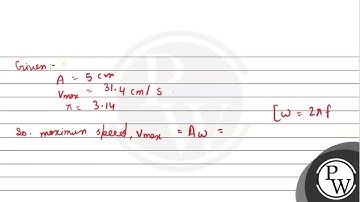 Given:-
A = 5 cm
Vmax = 31.4 cm/s
π = 3.14
[ω = 2πf
So. maximum speed, Vmax = Aω =
P
W